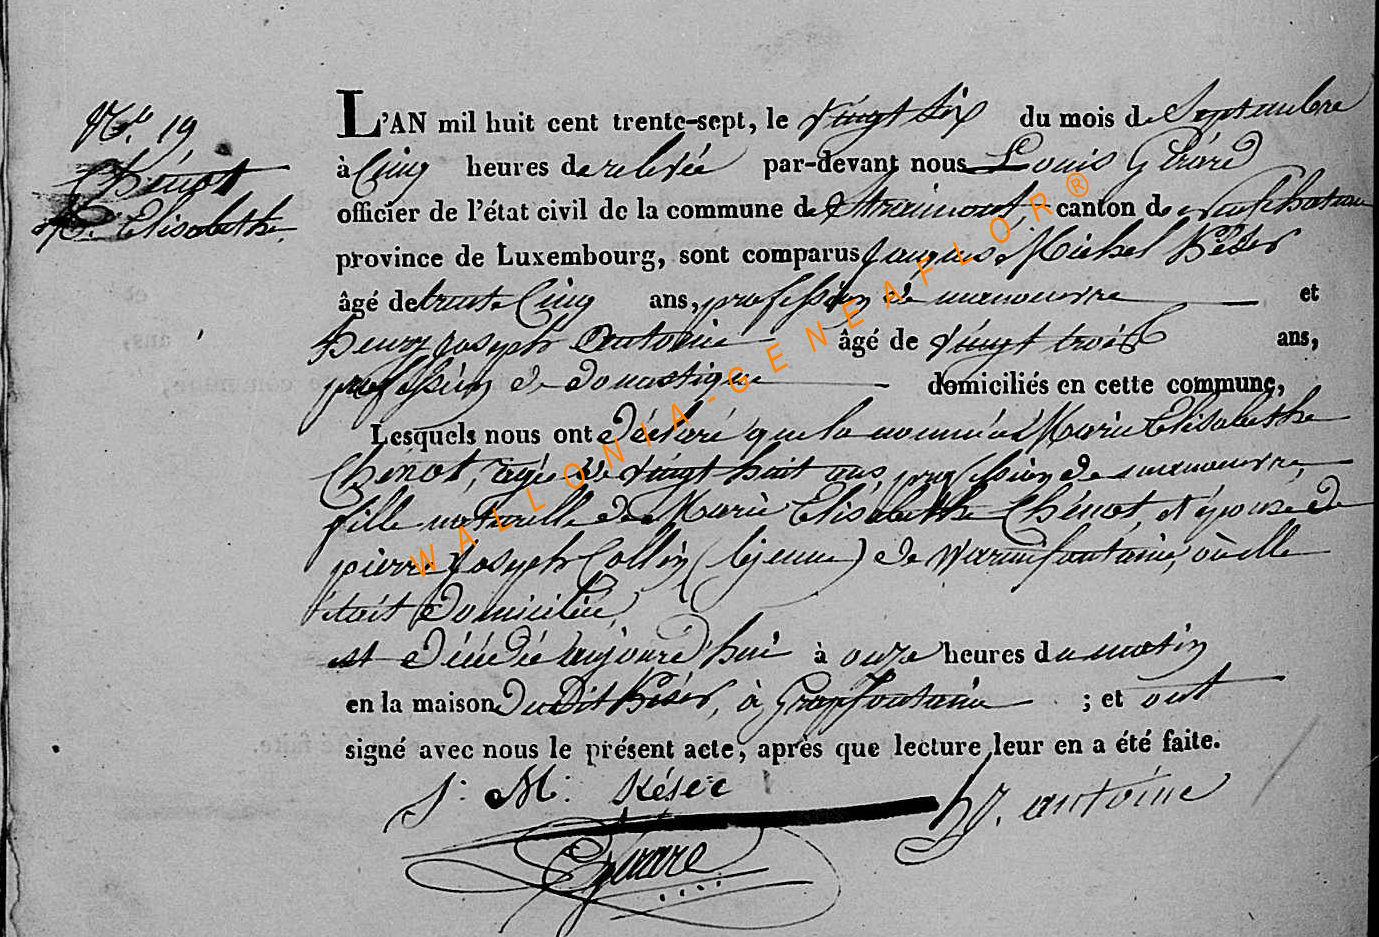 N.° 19
Chénot
M. Elisabethe.
L'AN mil huit cent trente-sept, le vingt six du mois de Septembre
à Cinq heures de relevée par-devant nous Louis Gérard
officier de l'état civil de la commune de Straimont, canton de neufchateau
province de Luxembourg, sont comparus Jacques Michel Késer
âgé de trente Cinq ans, profession de manouvre et
henry Joseph Antoine âgé de vingt trois ans,
profession de domestique domiciliés en cette commune,
Lesquels nous ont déclaré que la nommée Marie Elisabethe
Chénot, agée de vingt huit ans, profession de manouvre,
fille naturelle de Marie Elisabethe Chénot, et épouse de
pierre Joseph Collin (lejeune) de Warmifontaine, où elle
était domiciliée,
est décédée aujourd'hui à onze heures du matin
en la maison du dit Késer, à Grapfontaine ; et ont
signé avec nous le présent acte, après que lecture leur en a été faite.
J. M. Késer
h J. antoine
Gérard
WALLONIA-GENEAFLOR®